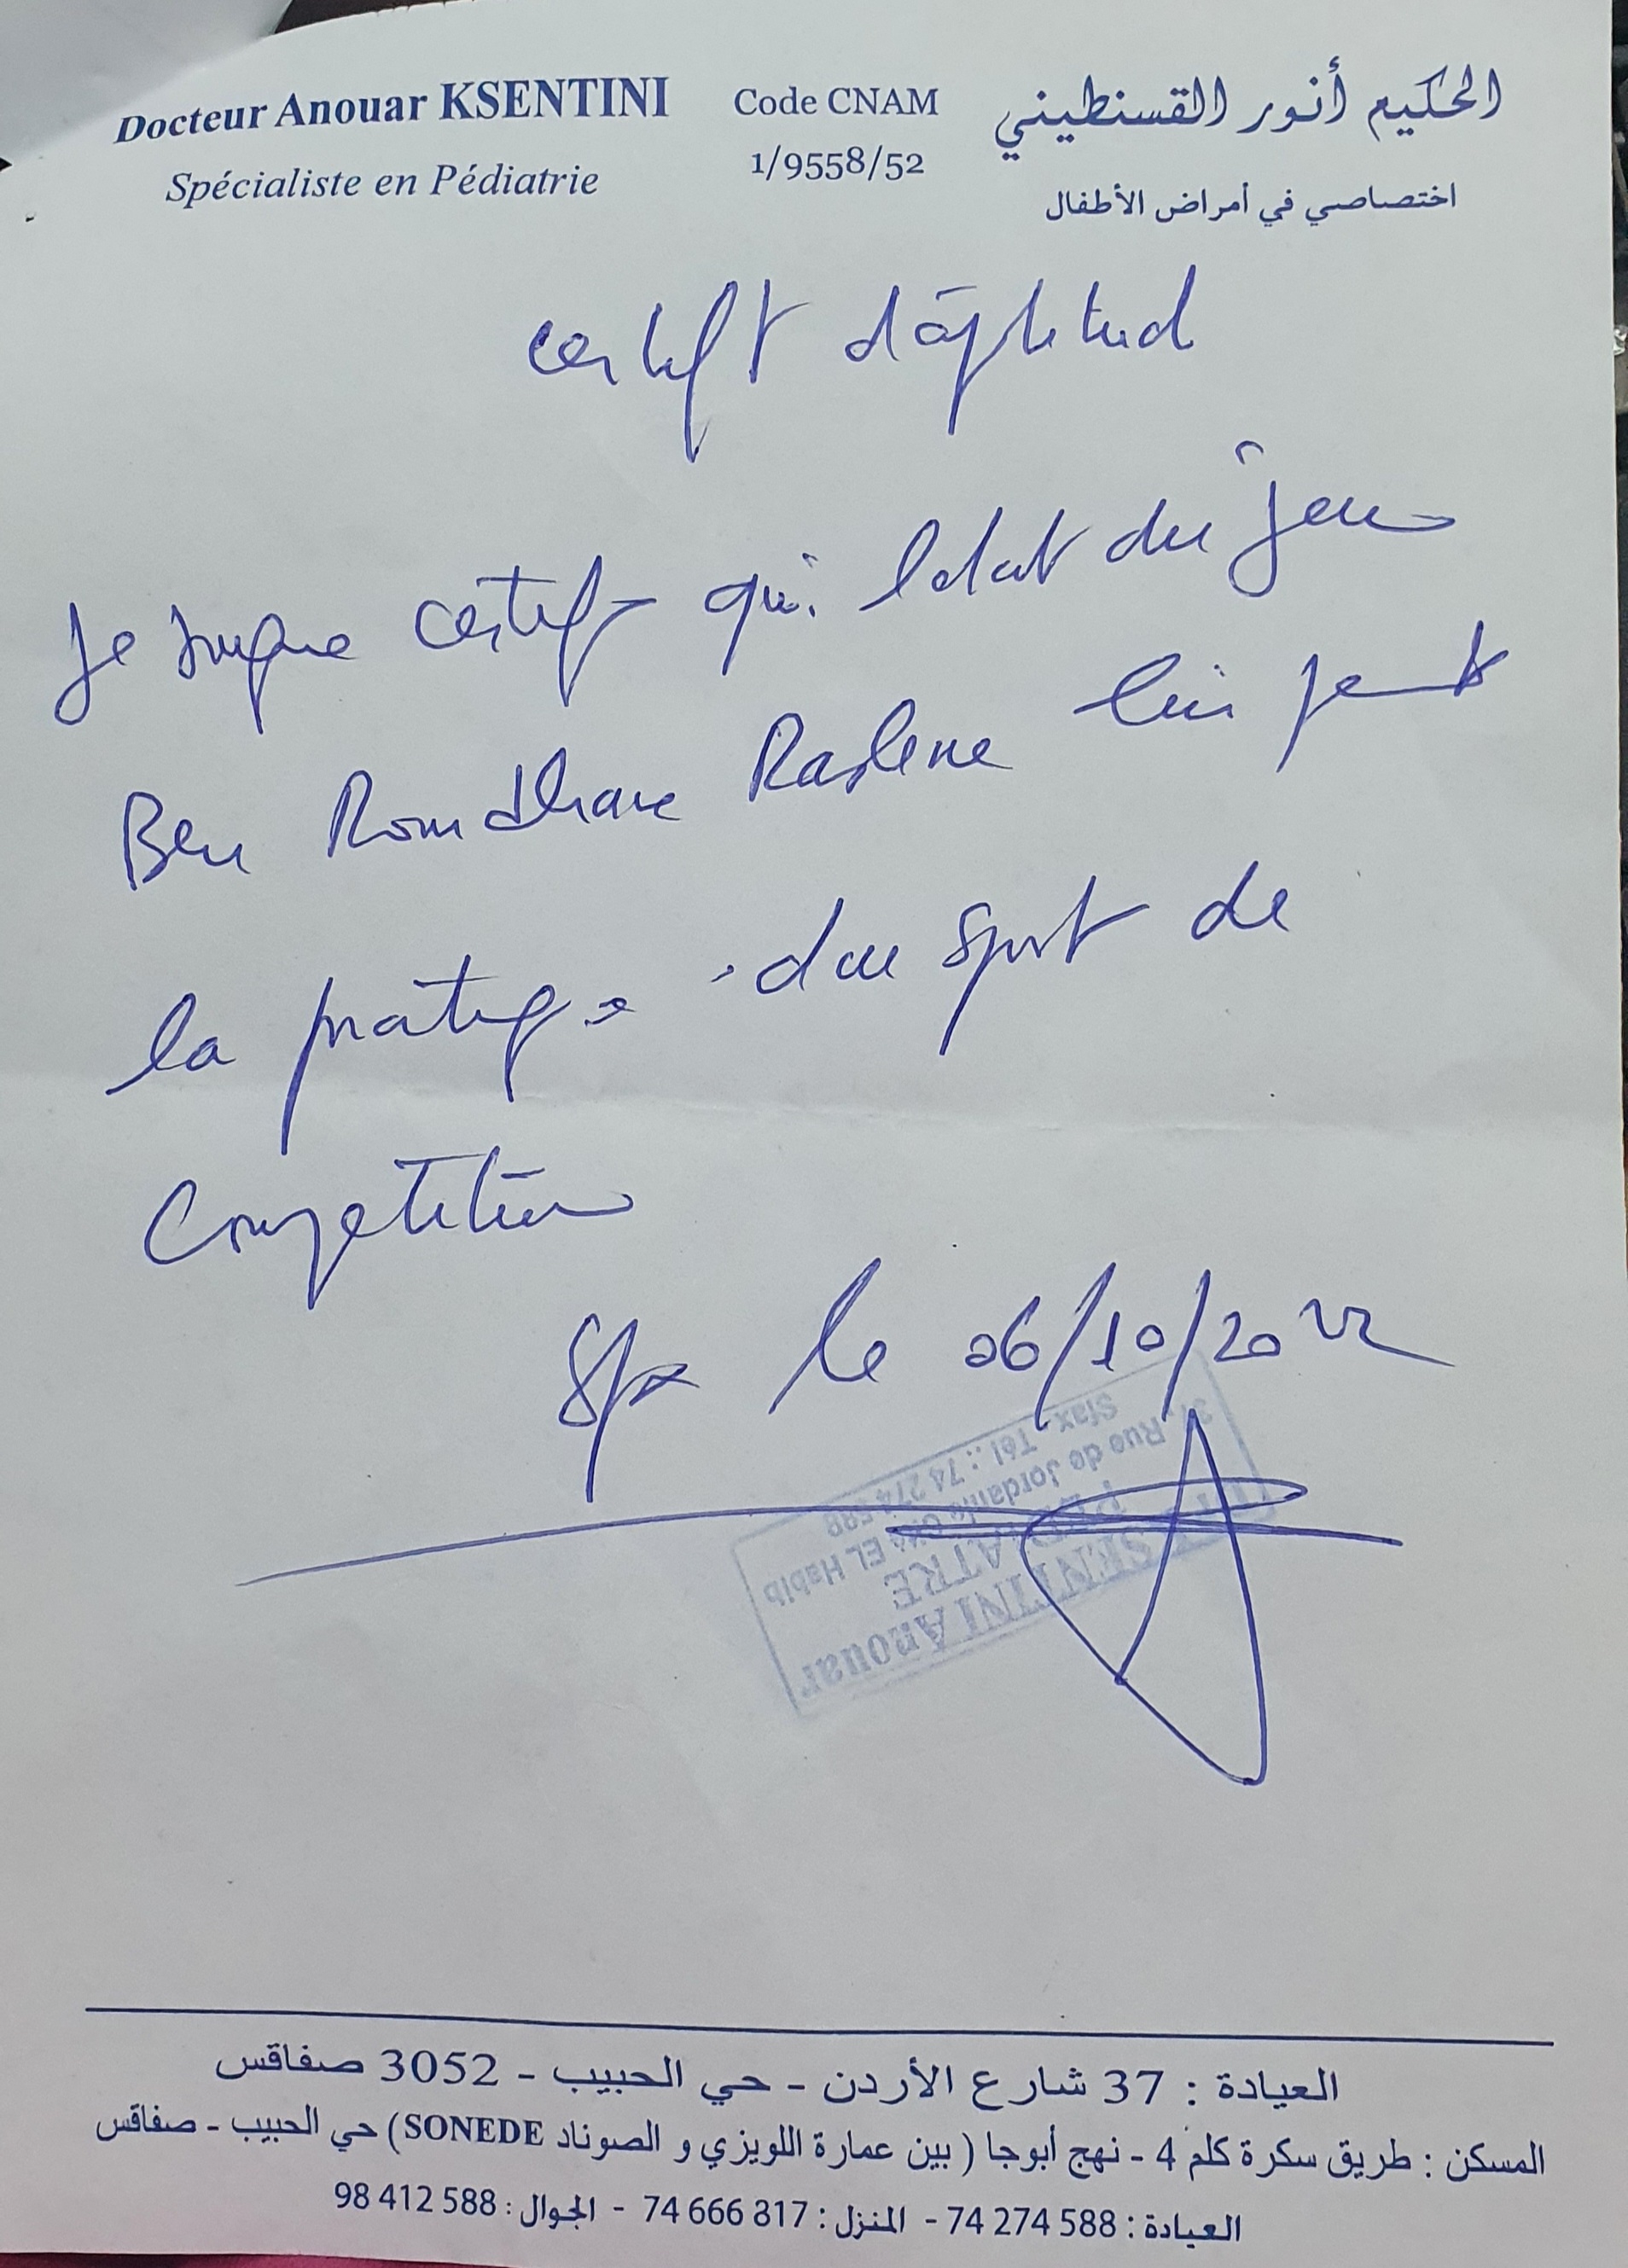 Docteur Anouar KSENTINI
Spécialiste en Pédiatrie
Code CNAM
1/9558/52
الحكيم أنور القسنطيني
اختصاصي في أمراض الأطفال
certift d'aptitud
Je susigne certifie qui l'etat du jeune
Ben Romdhane Raslene lui permet
la pratique du sport de
Competition
Sfax le 06/10/2022
KSENTINI Anouar
PEDIATRE
37, Rue de Jordanie Cité EL Habib
Sfax - Tél.: 74 274 588
العيادة : 37 شارع الأردن - حي الحبيب - 3052 صفاقس
المسكن : طريق سكرة كلم 4 - نهج أبوجا ( بين عمارة اللويزي و الصوناد SONEDE) حي الحبيب - صفاقس
العيادة : 74 274 588 - المنزل : 74 666 817 - الجوال : 98 412 588